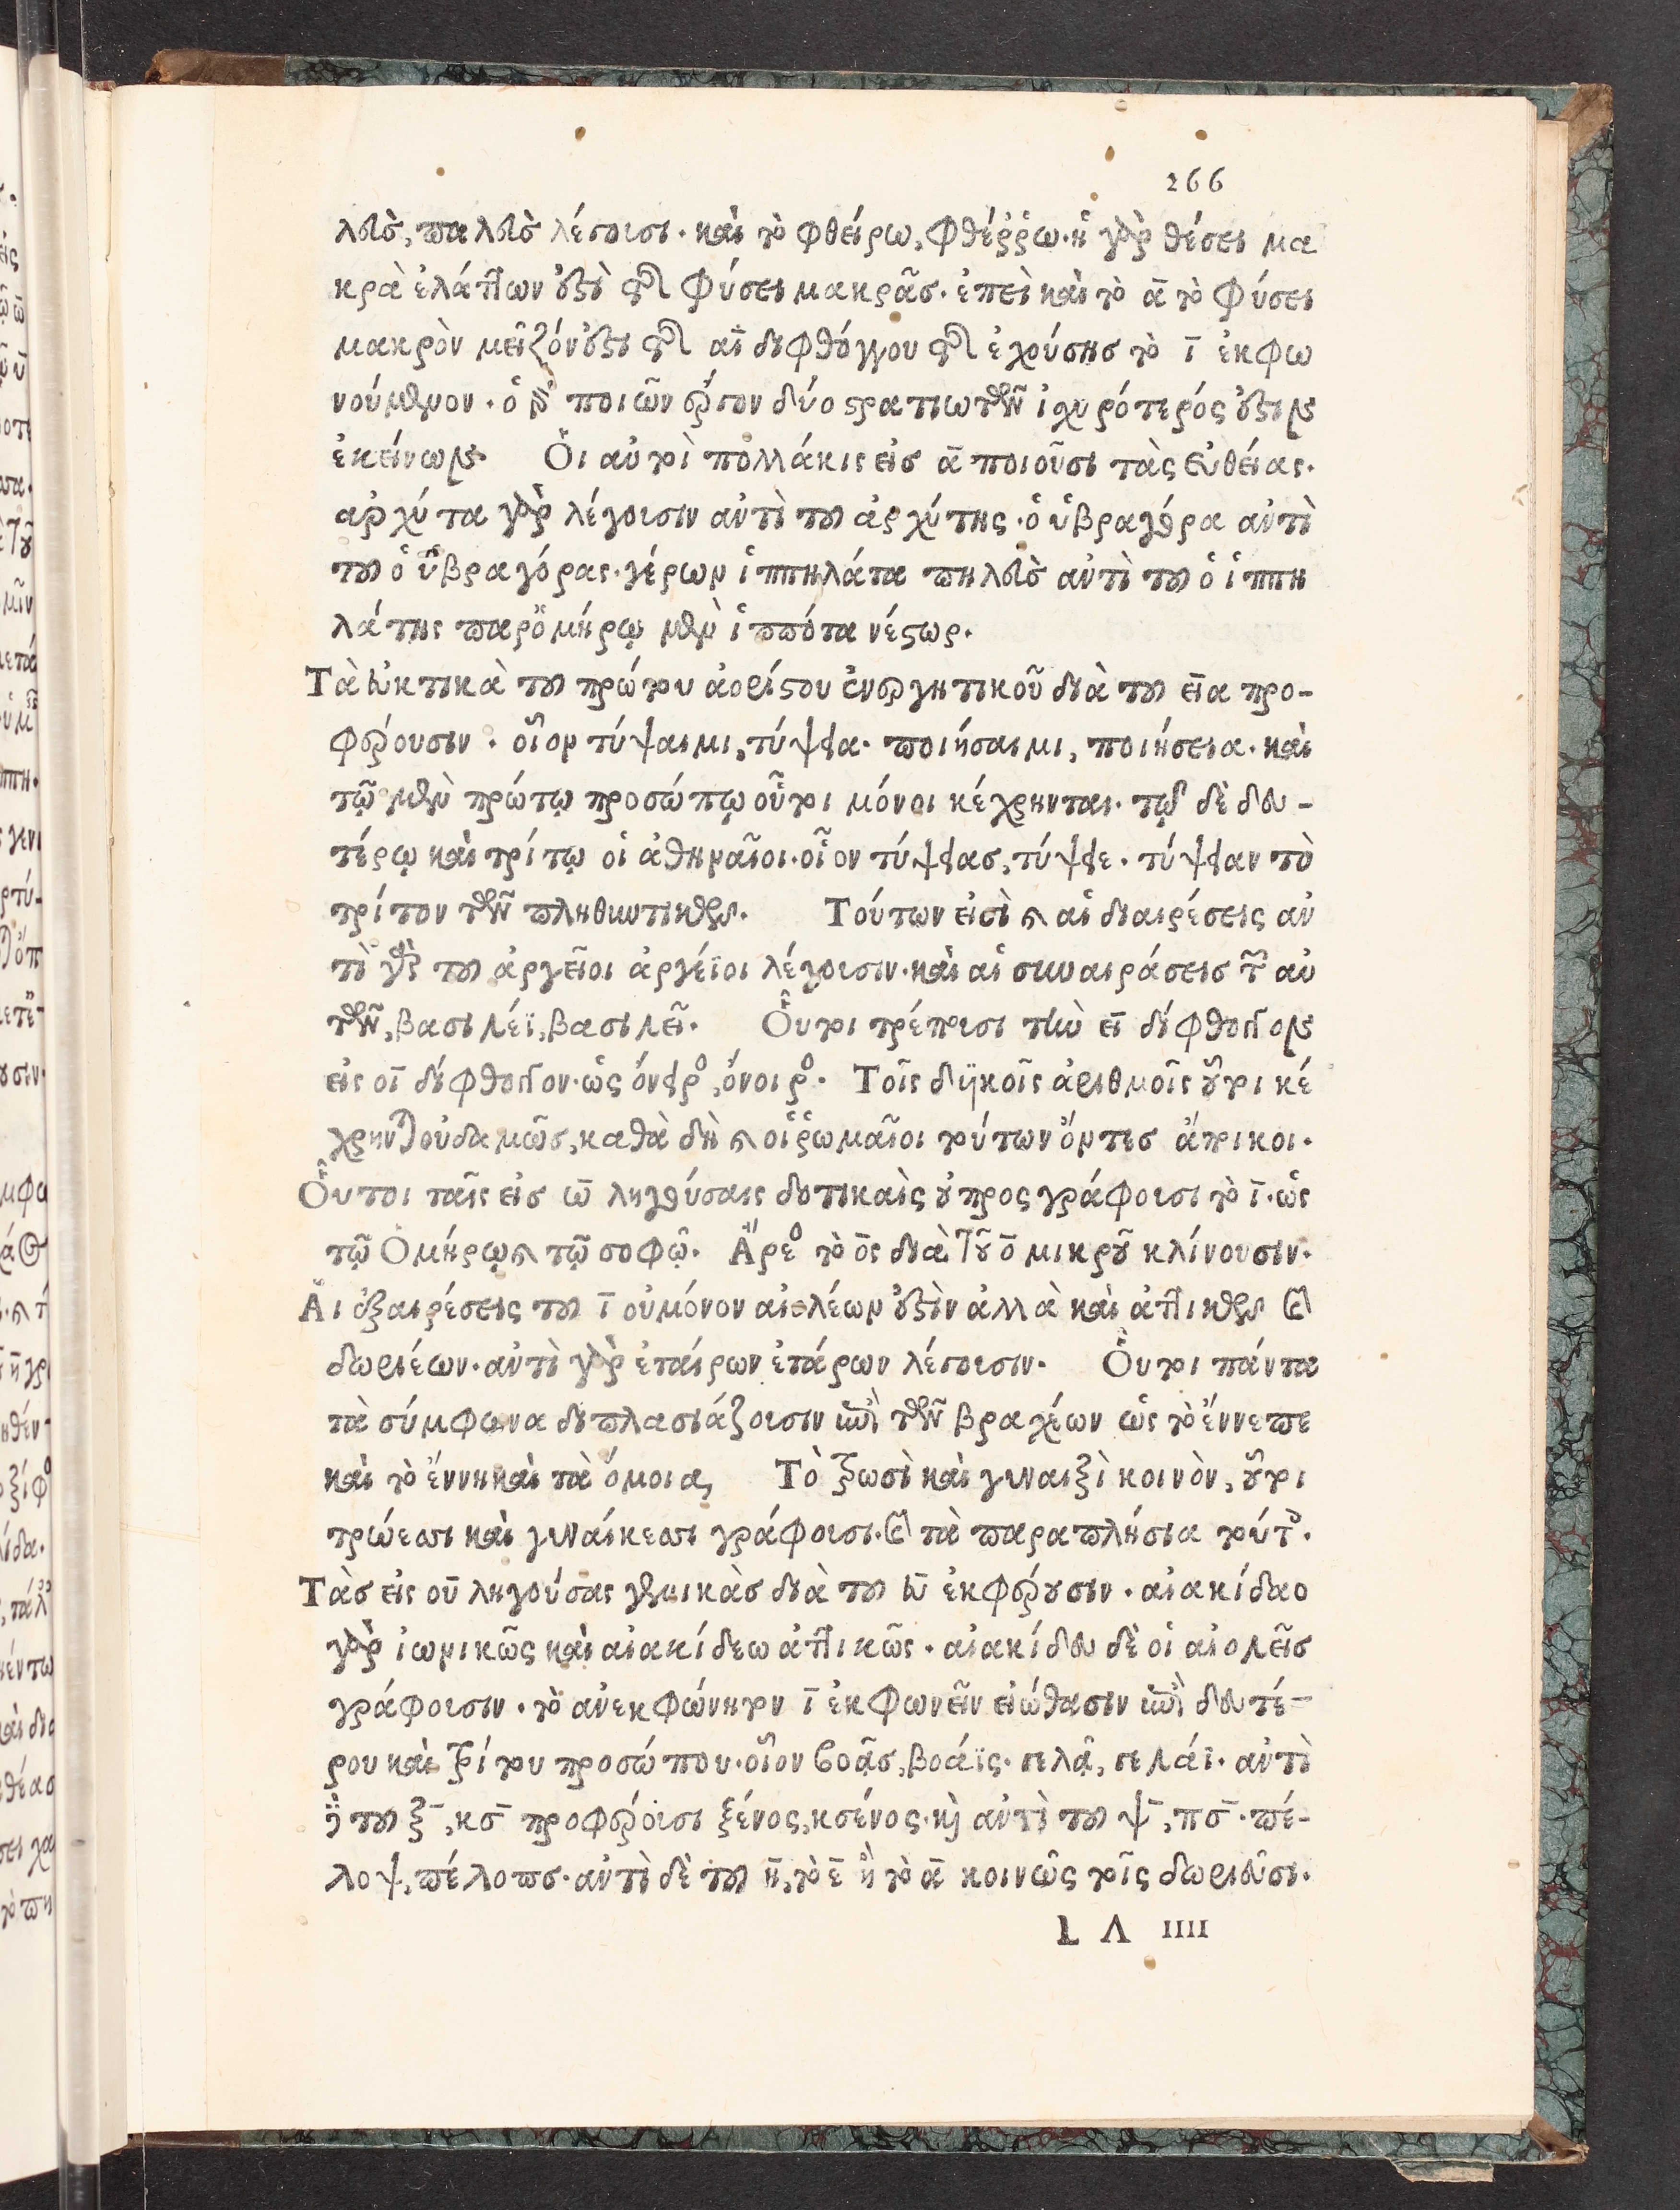 266
λεὺς, παλεὺς λέγουσι. καὶ τὸ φθείρω, φθέῤῥω. ἡ γὰρ θέσει μα
κρὰ ἐλάττων ἐστὶ τῆς φύσει μακρᾶς. ἐπεὶ καὶ τὸ ᾱ τὸ φύσει
μακρὸν μεῖζόν ἐστι τῆς αῑ διφθόγγου τῆς ἐχούσης τὸ ῑ ἐκφω
νούμενον. ὁ ποιῶν δύο στρατιωτῶν ἰσχυρότερός ἐστιν
ἐκείνων. Οἱ αὐτοὶ πολλάκις εἰς ᾱ ποιοῦσι τὰς εὐθείας.
ἀρχύτα γὰρ λέγουσιν ἀντὶ τοῦ ἀρχύτης. ὁ ὑβραγόρα ἀντὶ
τοῦ ὁ ὑβραγόρας. γέρων ἱππηλάτα πηλεὺς ἀντὶ τοῦ ὁ ἱππη
λάτης παρ' ὁμήρῳ μὲν ἱππότα νέστωρ.
Τὰ εὐκτικὰ τοῦ πρώτου ἀορίστου ἐνεργητικοῦ διὰ τοῦ εῑα προ-
φέρουσιν. οἷον τύψαιμι, τύψεια. ποιήσαιμι, ποιήσεια. καὶ
τῷ μὲν πρώτῳ προσώπῳ οὗτοι μόνοι κέχρηνται. τῷ δὲ δευ-
τέρῳ καὶ τρίτῳ οἱ ἀθηναῖοι. οἷον τύψειας, τύψειε. τύψειαν τὸ
τρίτον τῶν πληθυντικῶν. Τούτων εἰσὶ καὶ αἱ διαιρέσεις ἀν
τὶ γὰρ τοῦ ἀργεῖοι ἀργέϊοι λέγουσιν. καὶ αἱ συναιρέσεις τῶν αὐ
τῶν, βασιλέϊ, βασιλεῖ. Οὗτοι τρέπουσι τὴν εῑ δίφθογγον
εἰς οῑ δίφθογγον. ὡς ὄνειρος, ὄνοιρος. Τοῖς δυϊκοῖς ἀριθμοῖς οὗτοι κέ
χρηνται οὐδαμῶς, καθὰ δὴ καὶ οἱ ῥωμαῖοι τούτων ὄντες ἄποικοι.
Οὗτοι ταῖς εἰς ω̄ ληγούσαις δοτικαῖς οὐ προσγράφουσι τὸ ῑ. ὡς
τῷ Ὁμήρῳ καὶ τῷ σοφῷ. Ἄρεος τὸ ο̄ς διὰ τοῦ ο̄ μικροῦ κλίνουσιν.
Αἱ ἐξαιρέσεις τοῦ ῑ οὐ μόνον αἰολέων ἐστὶν ἀλλὰ καὶ ἀττικῶν καὶ
δωριέων. ἀντὶ γὰρ ἑταίρων ἑτάρων λέγουσιν. Οὗτοι πάντα
τὰ σύμφωνα διπλασιάζουσιν ἐπὶ τῶν βραχέων ὡς τὸ ἔννεπε
καὶ τὸ ἔννη καὶ τὰ ὅμοια, Τὸ τρωσὶ καὶ γυναιξὶ κοινὸν, οὗτοι
τρώεσσι καὶ γυναίκεσσι γράφουσι. καὶ τὰ παραπλήσια τούτοις.
Τὰς εἰς οῡ ληγούσας γενικὰς διὰ τοῦ εῡ ἐκφέρουσιν. αἰακίδαο
γὰρ ἰωνικῶς καὶ αἰακίδεω ἀττικῶς. αἰακίδευ δὲ οἱ αἰολεῖς
γράφουσιν. τὸ ἀνεκφώνητον ῑ ἐκφωνεῖν εἰώθασιν ἐπὶ δευτέ-
ρου καὶ τρίτου προσώπου. οἷον βοᾷς, βοάϊς. γελᾷ, γελάϊ. ἀντὶ
δὲ τοῦ ξ̄, κσ̄ προφέρουσι ξένος, κσένος. καὶ ἀντὶ τοῦ ψ̄, πσ̄. πέ-
λοψ, πέλοπς. ἀντὶ δὲ τοῦ η̄, τὸ ε̄ ἢ τὸ ᾱ κοινῶς τοῖς δωριεῦσι.
L Λ IIII